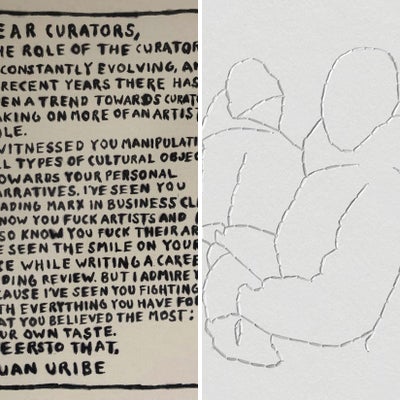 EAR CURATORS,
HE ROLE OF THE CURATOR
CONSTANTLY EVOLVING, AN
RECENT YEARS THERE HAS
EN A TREND TOWARDS CURATO
AKING ON MORE OF AN ARTIST
OLE.
WITNESSED YOU MANIPULATI
LL TYPES OF CULTURAL OBJEC
OWARDS YOUR PERSONAL
ARRATIVES. I'VE SEEN YOU
ADING MARX IN BUSINESS CL
NOW YOU FUCK ARTISTS AND
SO KNOW YOU FUCK THEIR AR
E SEEN THE SMILE ON YOUR
CE WHILE WRITING A CAREE
DING REVIEW. BUT I ADMIRE Y
CAUSE I'VE SEEN YOU FIGHTING
TH EVERYTHING YOU HAVE FO
AT YOU BELIEVED THE MOST:
UR OWN TASTE.
EERSTO THAT,
UAN URIBE